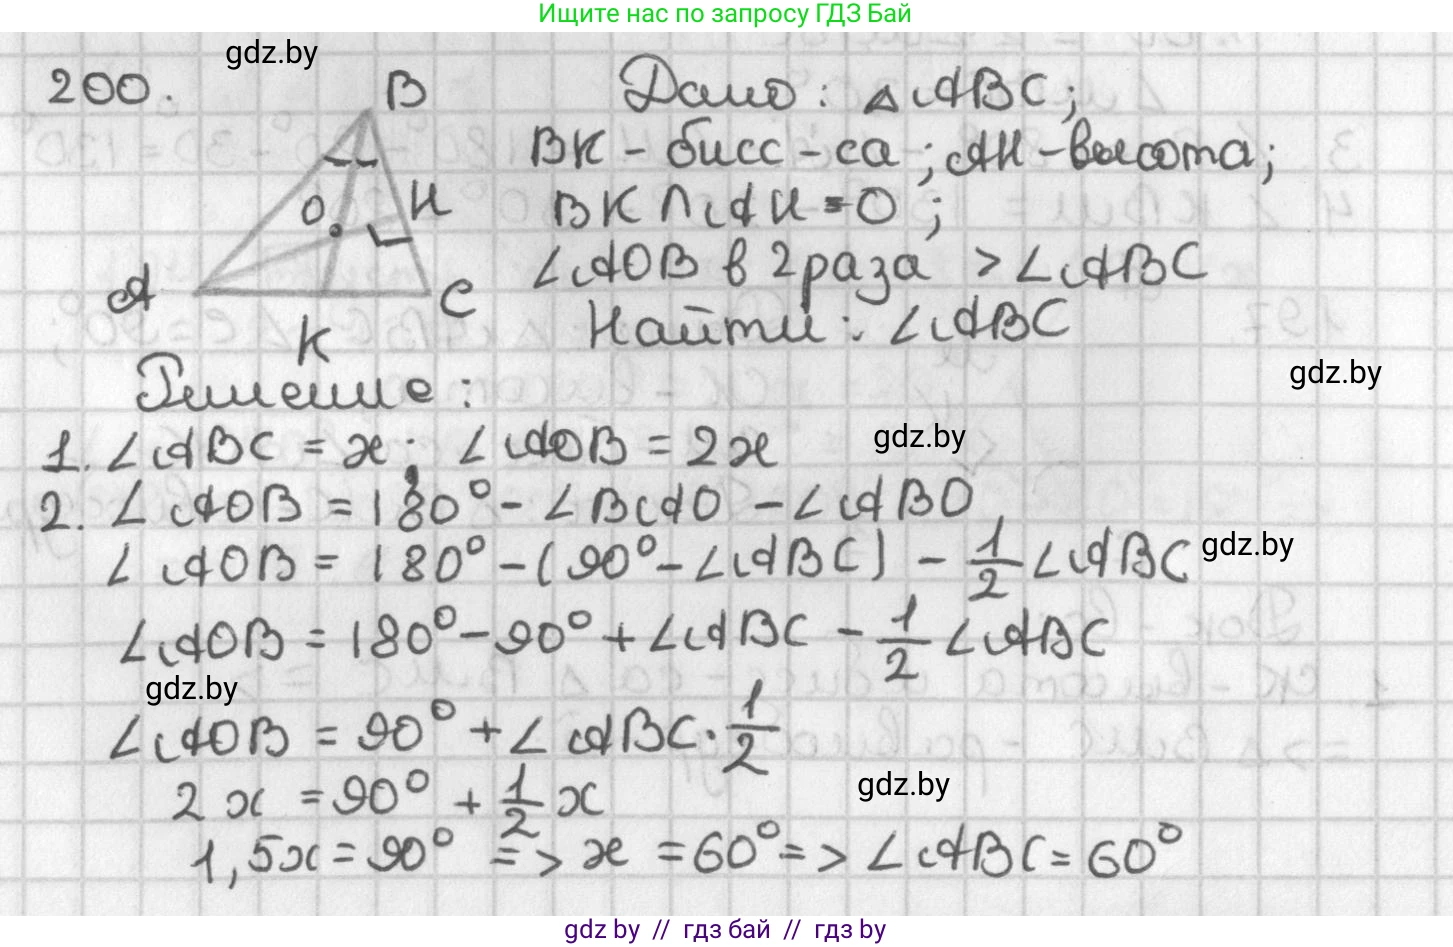 Ищите нас по запросу ГДЗ Бай
gdz.by
200.
B
O
H
A
K
C
Дано: △ABC;
BK - бисс-са; AH - высота;
BK ∩ AH = O;
∠AOB в 2 раза > ∠ABC
Найти: ∠ABC
gdz.by
Решение:
1. ∠ABC = x; ∠AOB = 2x
gdz.by
2. ∠AOB = 180° - ∠BAO - ∠ABO
∠AOB = 180° - (90° - ∠ABC) - 1/2 ∠ABC
gdz.by
∠AOB = 180° - 90° + ∠ABC - 1/2 ∠ABC
gdz.by
∠AOB = 90° + ∠ABC · 1/2
2x = 90° + 1/2 x
gdz.by
1,5x = 90° => x = 60° => ∠ABC = 60°
gdz.by // гдз бай // гдз by